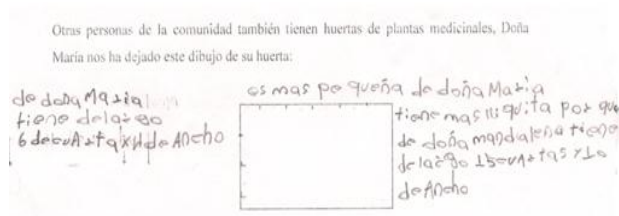 Otras personas de la comunidad también tienen huertas de plantas medicinales, Doña
María nos ha dejado este dibujo de su huerta:
de doña Maria
tiene de largo
6 de cuArta x 4 de Ancho
es mas pe queña de doña Maria
tiene mas
por que
de doña mandalena tiene
de largo 15 cuArtas x 10
de Ancho